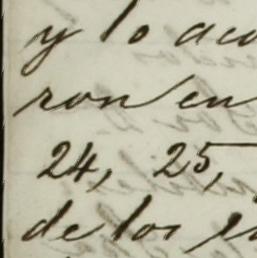 y lo aco
ron en
24, 25,
de los